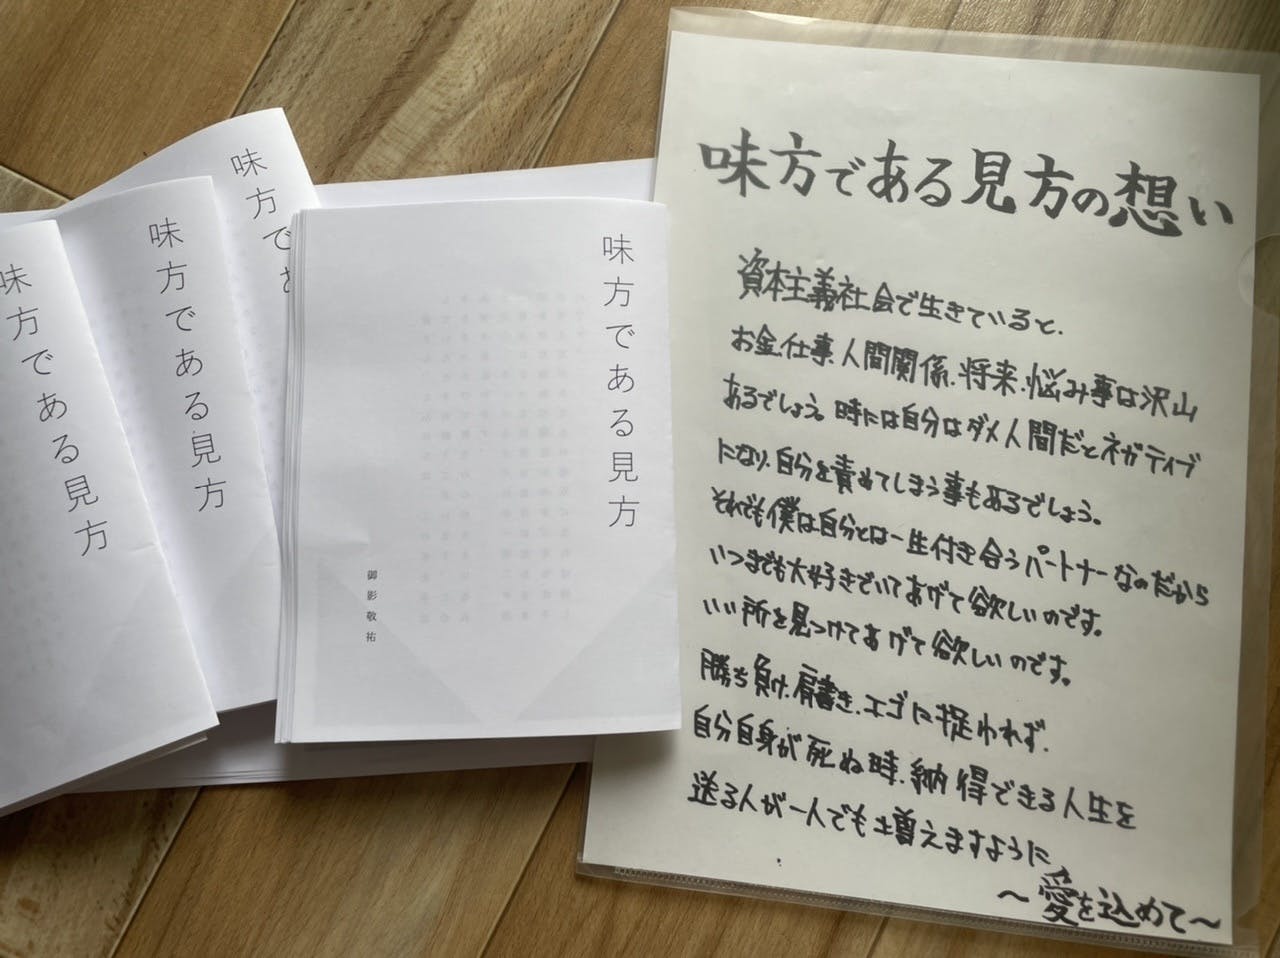 味方である見方
味方である見方
味方でき
味方である見方
御影敬祐
味方である見方の想い
資本主義社会で生きていると、
お金、仕事、人間関係、将来、悩み事は沢山
あるでしょう。時には自分はダメ人間だとネガティブ
になり、自分を責めてしまう事もあるでしょう。
それでも僕は自分とは一生付き合うパートナーなのだから
いつまでも大好きでいてあげて欲しいのです。
いい所を見つけてあげて欲しいのです。
勝ち負け、肩書き、エゴに捉われず、
自分自身が死ぬ時、納得できる人生を
送る人が一人でも増えますように
〜愛を込めて〜